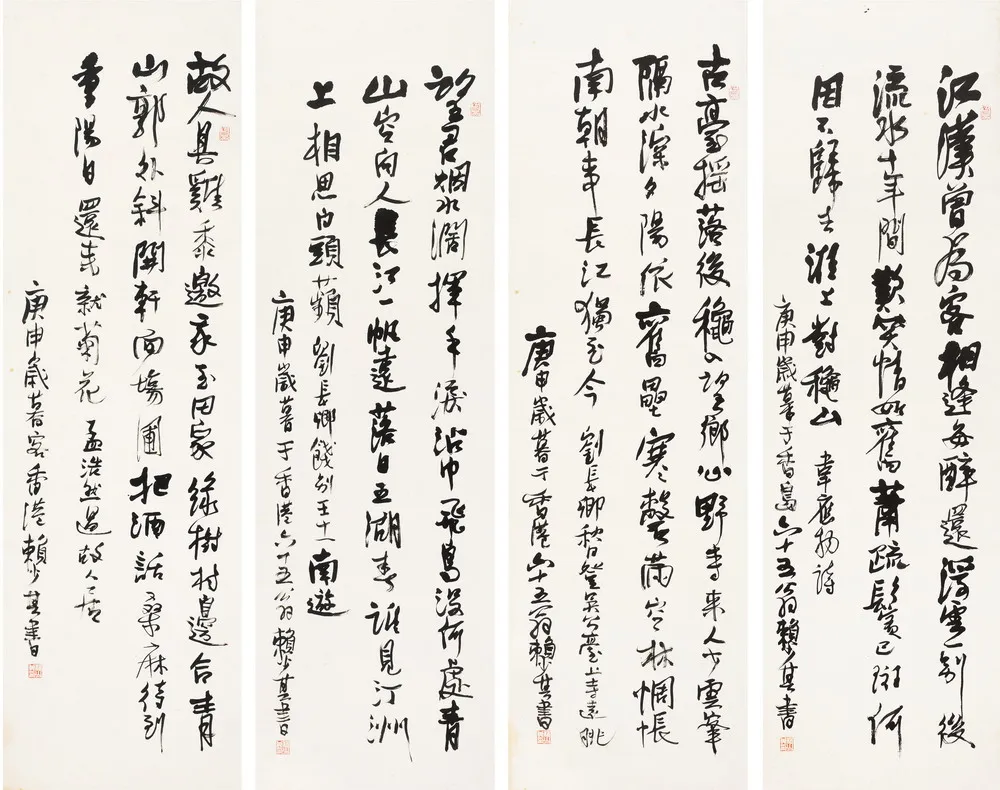 江漢曾為客相逢每醉還浮雲一別後
流水十年間歡笑情如舊蕭疏鬢已斑何
因不歸去淮上對穐山 韋應物詩
庚申歲暮于香島六十五翁賴少其書
古臺搖落後穐入望鄉心野寺來人少雲峯
隔水深夕陽依舊壘寒磬滿空林惆悵
南朝事長江獨至今 劉長卿秋日登吳公臺上寺遠眺
庚申歲暮于香港六十五翁賴少其書
望君烟水濶揮手淚沾巾飛鳥沒何處青
山空向人長江一帆遠落日五湖春誰見汀洲
上相思白頭蘋 劉長卿餞別王十一南遊
庚申歲暮于香港六十五翁賴少其書
故人具雞黍邀我至田家綠樹村邊合青
山郭外斜開軒面場圃把酒話桑麻待到
重陽日還來就菊花 孟浩然過故人居
庚申歲暮客香港賴少其書